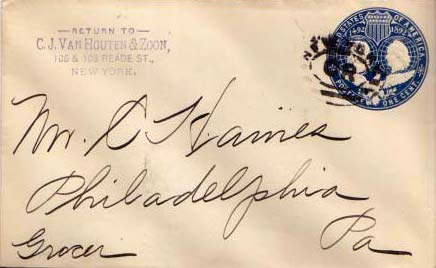 RETURN TO
C. J. VAN HOUTEN & ZOON,
106 & 108 READE ST.,
NEW YORK.
UNITED STATES OF AMERICA
1492 1892
POSTAGE ONE CENT
NEW YORK
Mr. C T Haines
Philadelphia
Pa
Grocer